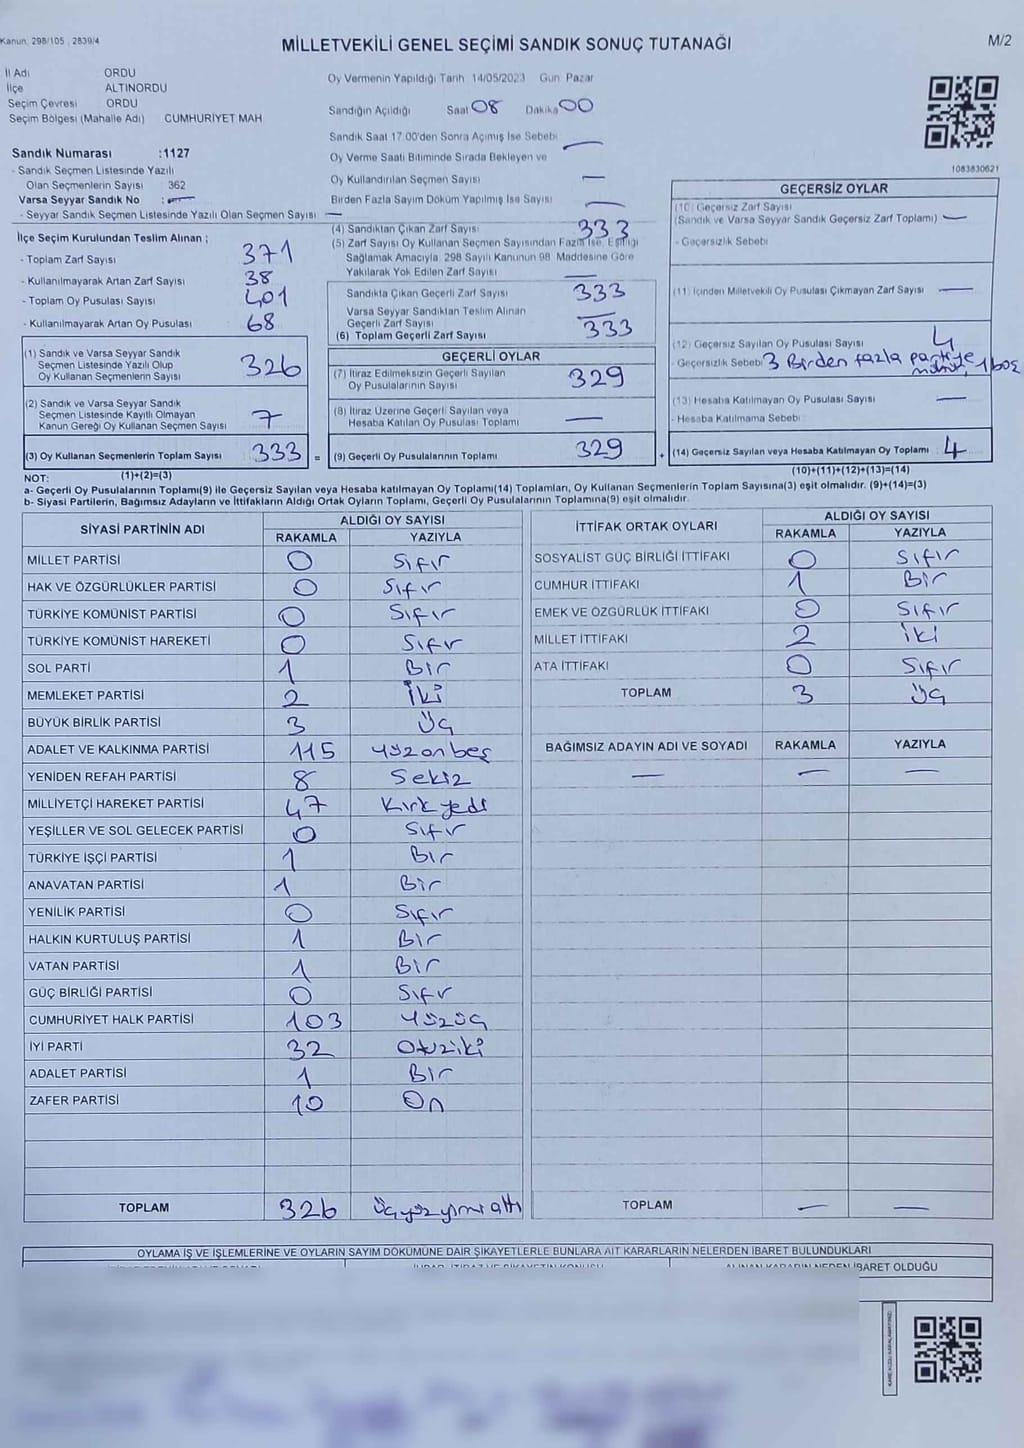 Kanun: 298/105 ; 2839/4
MİLLETVEKİLİ GENEL SEÇİMİ SANDIK SONUÇ TUTANAĞI
M/2
İl Adı ORDU
İlçe ALTINORDU
Seçim Çevresi ORDU
Seçim Bölgesi (Mahalle Adı) CUMHURİYET MAH
Sandık Numarası :1127
- Sandık Seçmen Listesinde Yazılı
Olan Seçmenlerin Sayısı 362
Varsa Seyyar Sandık No : —
- Seyyar Sandık Seçmen Listesinde Yazılı Olan Seçmen Sayısı —
İlçe Seçim Kurulundan Teslim Alınan ;
- Toplam Zarf Sayısı 371
- Kullanılmayarak Artan Zarf Sayısı 38
- Toplam Oy Pusulası Sayısı 401
- Kullanılmayarak Artan Oy Pusulası 68
(1) Sandık ve Varsa Seyyar Sandık
Seçmen Listesinde Yazılı Olup
Oy Kullanan Seçmenlerin Sayısı 326
(2) Sandık ve Varsa Seyyar Sandık
Seçmen Listesinde Kayıtlı Olmayan
Kanun Gereği Oy Kullanan Seçmen Sayısı 7
(3) Oy Kullanan Seçmenlerin Toplam Sayısı 333 =
(1)+(2)=(3)
Oy Vermenin Yapıldığı Tarih 14/05/2023 Gün Pazar
Sandığın Açıldığı Saat 08 Dakika 00
Sandık Saat 17:00'den Sonra Açımış İse Sebebi —
Oy Verme Saati Bitiminde Sırada Bekleyen ve
Oy Kullandırılan Seçmen Sayısı —
Birden Fazla Sayım Döküm Yapılmış İse Sayısı —
(4) Sandıktan Çıkan Zarf Sayısı 333
(5) Zarf Sayısı Oy Kullanan Seçmen Sayısından Fazla İse, Eşitliği
Sağlamak Amacıyla 298 Sayılı Kanunun 98. Maddesine Göre
Yakılarak Yok Edilen Zarf Sayısı —
Sandıkta Çıkan Geçerli Zarf Sayısı 333
Varsa Seyyar Sandıktan Teslim Alınan
Geçerli Zarf Sayısı —
(6) Toplam Geçerli Zarf Sayısı 333
GEÇERLİ OYLAR
(7) İtiraz Edilmeksizin Geçerli Sayılan
Oy Pusulalarının Sayısı 329
(8) İtiraz Üzerine Geçerli Sayılan veya
Hesaba Katılan Oy Pusulası Toplamı —
(9) Geçerli Oy Pusulalarının Toplamı 329 +
1083830621
GEÇERSİZ OYLAR
(10) Geçersiz Zarf Sayısı
(Sandık ve Varsa Seyyar Sandık Geçersiz Zarf Toplamı) —
- Geçersizlik Sebebi
(11) İçinden Milletvekili Oy Pusulası Çıkmayan Zarf Sayısı —
(12) Geçersiz Sayılan Oy Pusulası Sayısı 4
- Geçersizlik Sebebi 3 Birden fazla partiye
mühür, 1 boş
(13) Hesaba Katılmayan Oy Pusulası Sayısı —
- Hesaba Katılmama Sebebi
(14) Geçersiz Sayılan veya Hesaba Katılmayan Oy Toplamı : 4
(10)+(11)+(12)+(13)=(14)
NOT:
a- Geçerli Oy Pusulalarının Toplamı(9) ile Geçersiz Sayılan veya Hesaba katılmayan Oy Toplamı(14) Toplamları, Oy Kullanan Seçmenlerin Toplam Sayısına(3) eşit olmalıdır. (9)+(14)=(3)
b- Siyasi Partilerin, Bağımsız Adayların ve İttifakların Aldığı Ortak Oyların Toplamı, Geçerli Oy Pusulalarının Toplamına(9) eşit olmalıdır.
SİYASİ PARTİNİN ADI ALDIĞI OY SAYISI
RAKAMLA YAZIYLA
MİLLET PARTİSİ 0 Sıfır
HAK VE ÖZGÜRLÜKLER PARTİSİ 0 Sıfır
TÜRKİYE KOMÜNİST PARTİSİ 0 Sıfır
TÜRKİYE KOMÜNİST HAREKETİ 0 Sıfır
SOL PARTİ 1 Bir
MEMLEKET PARTİSİ 2 İki
BÜYÜK BİRLİK PARTİSİ 3 Üç
ADALET VE KALKINMA PARTİSİ 115 Yüzonbeş
YENİDEN REFAH PARTİSİ 8 Sekiz
MİLLİYETÇİ HAREKET PARTİSİ 47 Kırkyedi
YEŞİLLER VE SOL GELECEK PARTİSİ 0 Sıfır
TÜRKİYE İŞÇİ PARTİSİ 1 Bir
ANAVATAN PARTİSİ 1 Bir
YENİLİK PARTİSİ 0 Sıfır
HALKIN KURTULUŞ PARTİSİ 1 Bir
VATAN PARTİSİ 1 Bir
GÜÇ BİRLİĞİ PARTİSİ 0 Sıfır
CUMHURİYET HALK PARTİSİ 103 Yüzüç
İYİ PARTİ 32 Otuziki
ADALET PARTİSİ 1 Bir
ZAFER PARTİSİ 10 On
TOPLAM 326 Üçyüzyirmialtı
İTTİFAK ORTAK OYLARI ALDIĞI OY SAYISI
RAKAMLA YAZIYLA
SOSYALİST GÜÇ BİRLİĞİ İTTİFAKI 0 Sıfır
CUMHUR İTTİFAKI 1 Bir
EMEK VE ÖZGÜRLÜK İTTİFAKI 0 Sıfır
MİLLET İTTİFAKI 2 İki
ATA İTTİFAKI 0 Sıfır
TOPLAM 3 Üç
BAĞIMSIZ ADAYIN ADI VE SOYADI RAKAMLA YAZIYLA
— — —
TOPLAM — —
OYLAMA İŞ VE İŞLEMLERİNE VE OYLARIN SAYIM DÖKÜMÜNE DAİR ŞİKAYETLERLE BUNLARA AİT KARARLARIN NELERDEN İBARET BULUNDUKLARI
ALINAN KARARIN NEDEN İBARET OLDUĞU